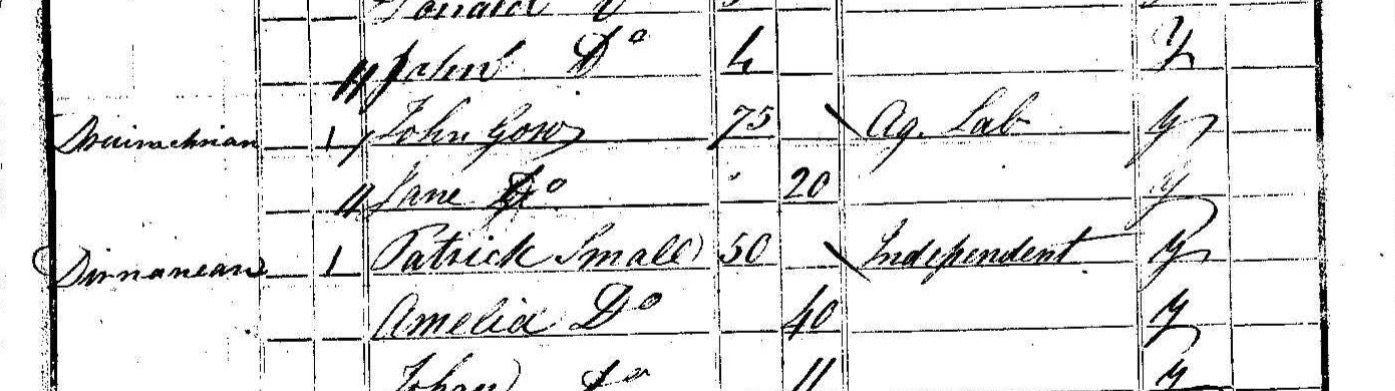 Donald Do
// John Do 4 y
Druimchrian 1 / John Gow 75 \ Ag. Lab y
// Jane Do 20 y
Dirnanean 1 Patrick Small 50 \ Independent y
Amelia Do 40 y
Johan Do 11 y